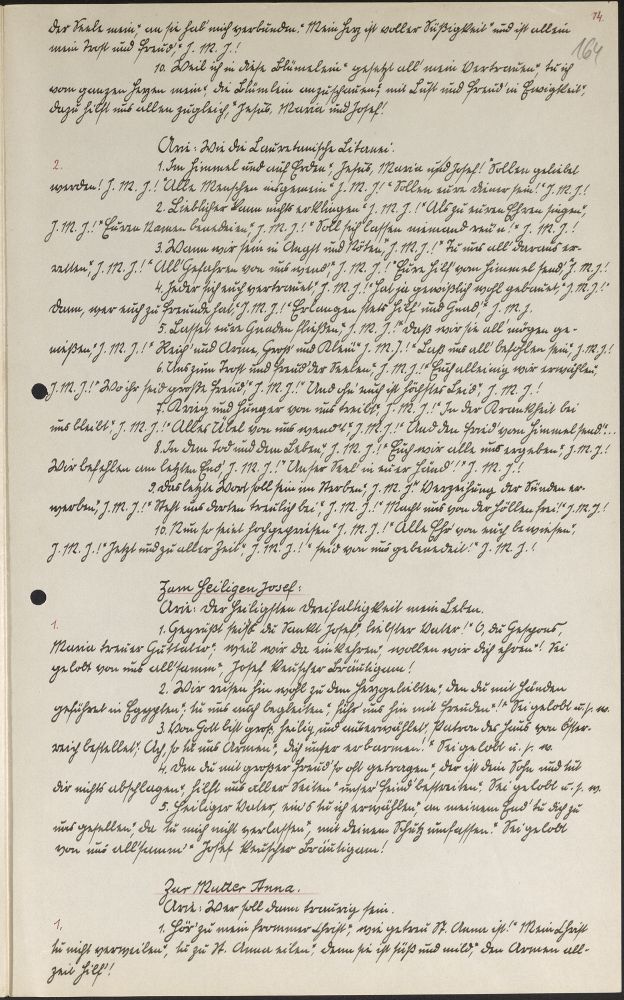 14.
164
der Seele mein," an sie hab' mich verbunden." Mein Herz ist voller Süßigkeit "und ist allein
mein Trost und Freud'," J. M. J.!
10. Weil ich in diese Blümelein" gesetzt all' mein Vertrauen," tu ich
vom ganzen Herzen mein," die Blümlein anzuschauen," mit Lust und Freud' in Ewigkeit,"
dazu helft uns allen zugleich" Jesus, Maria und Josef!
Arie: Wie die Lauretanische Litanei.
2. 1. Im Himmel und auf Erden," Jesus, Maria und Josef! "Sollen gelobt
werden! J. M. J.! "Alle Menschen insgemein" J. M. J.! "Sollen eure Diener sein!" J. M. J.!
2. Lieblicher kann nichts erklingen" J. M. J.! "Als zu euren Ehren singen,"
J. M. J.! "Euren Namen benedeien," J. M. J.! "Soll sich lassen niemand reu'n!" J. M. J.!
3. Wann wir sein in Angst und Nöten," J. M. J.! "Tu uns all' daraus er-
retten," J. M. J.! "All' Gefahren von uns wend'," J. M. J.! "Eure Hilf' vom Himmel send'," J. M. J.!
4. Jeder sich euch vertrauet," J. M. J.! "Hat ja gewißlich wohl gebauet," J. M. J.!
Dann, wer euch zu Freunde hat," J. M. J.! "Erlangen stets Hilf' und Gnad'," J. M. J.
5. Lasset eure Gnaden fließen," J. M. J.! "daß wir sie all' mögen ge-
nießen," J. M. J.! "Reich' und Arme, Groß' und Klein," J. M. J.! "Laß uns all' befohlen sein," J. M. J.!
6. Uns zum Trost und Freud' der Seelen," J. M. J.! "Euch alleinig wir erwählen,"
J. M. J.! "Wo ihr seid große Freud'," J. M. J.! "Und ohn' euch ist höchstes Leid," J. M. J.!
7. Krieg und Hunger von uns treibt," J. M. J.! "In der Krankheit bei
uns bleibt," J. M. J.! "Alles Übel von uns wend't," J. M. J.! "Und den Fried' vom Himmel send't...
8. In dem Tod und dem Leben," J. M. J.! "Euch wir alle uns ergeben," J. M. J.!
Wir befehlen am letzten End'," J. M. J.! "Unser Seel' in eure Händ'!" J. M. J.!
9. Das letzte Wort soll sein im Sterben," J. M. J." Verzeihung der Sünden er-
werben," J. M. J.! "Steht uns dorten treulich bei," J. M. J.! "Macht uns von der Höllen frei!" J. M. J.!
10. Nun so seiet hochgepriesen" J. M. J.! "Alle Ehr' von euch bewiesen,"
J. M. J.! "Jetzt und zu aller Zeit," J. M. J.! "seid von uns gebenedeit!" J. M. J.!
Zum Heiligen Josef:
Arie: Der Heiligsten Dreifaltigkeit mein Leben.
1. 1. Gegrüßt seist du Sankt Josef," liebster Vater!" O, du Gespons,"
Maria treuer Guttäter," weil wir da einkehren," wollen wir dich ehren"! Sei
gelobt von uns all'samm'," Josef keuscher Bräutigam!
2. Wir reisen hin wohl zu dem Herzgeliebten," den du mit Händen
geführet in Egypten," tu uns auch begleiten," führ' uns hin mit Freuden!" Sei gelobt u. s. w.
3. Von Gott bist groß, heilig und auserwählet," Patron des Haus von Öster-
reich bestellet," Ach, so tu uns Armen," dich unser erbarmen!" Sei gelobt u. s. w.
4. Den du mit großer Freud' so oft getragen," der ist dein Sohn und tut
dir nichts abschlagen," hilft uns aller Seiten" unser Feind' bestreiten." Sei gelobt u. s. w.
5. Heiliger Vater, ein's tu ich erwählen," an meinem End' tu dich zu
uns gesellen," da tu mich nicht verlassen," mit deinem Schutz umfassen." Sei gelobt
von uns all'samm'" Josef keuscher Bräutigam!
Zur Mutter Anna.
Arie: Wer soll dann traurig sein.
1. 1. Hör' zu mein frommer Christ," wie getreu St. Anna ist!" Mein Christ
tu nicht verweilen," tu zu St. Anna eilen," denn sie ist süß und mild," den Armen all-
zeit Hilf'!